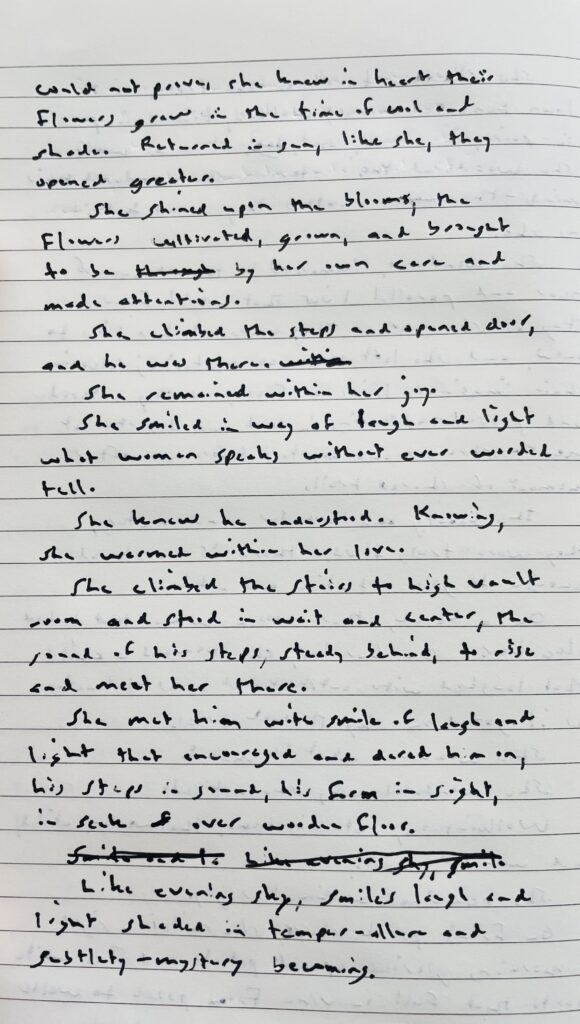 could not prove, she knew in heart their
flowers grew in the time of cool and
shade. Returned in sun, like she, they
opened greater.
She shined upon the blooms, the
flowers cultivated, grown, and brought
to be through by her own care and
made attentions.
She climbed the steps and opened door,
and he was there. within
She remained within her joy.
She smiled in way of laugh and light
what woman speaks without ever worded
tell.
She knew he understood. Knowing,
she warmed within her love.
She climbed the stairs to high vault
room and stood in wait and center, the
sound of his steps, steady behind, to rise
and meet her there.
She met him with smile of laugh and
light that encouraged and dared him on,
his steps in sound, his form in sight,
in seek of over wooden floor.
Like evening sky, smile
Like evening sky, smile's laugh and
light shaded in temper-allure and
subtlety-mystery becoming.